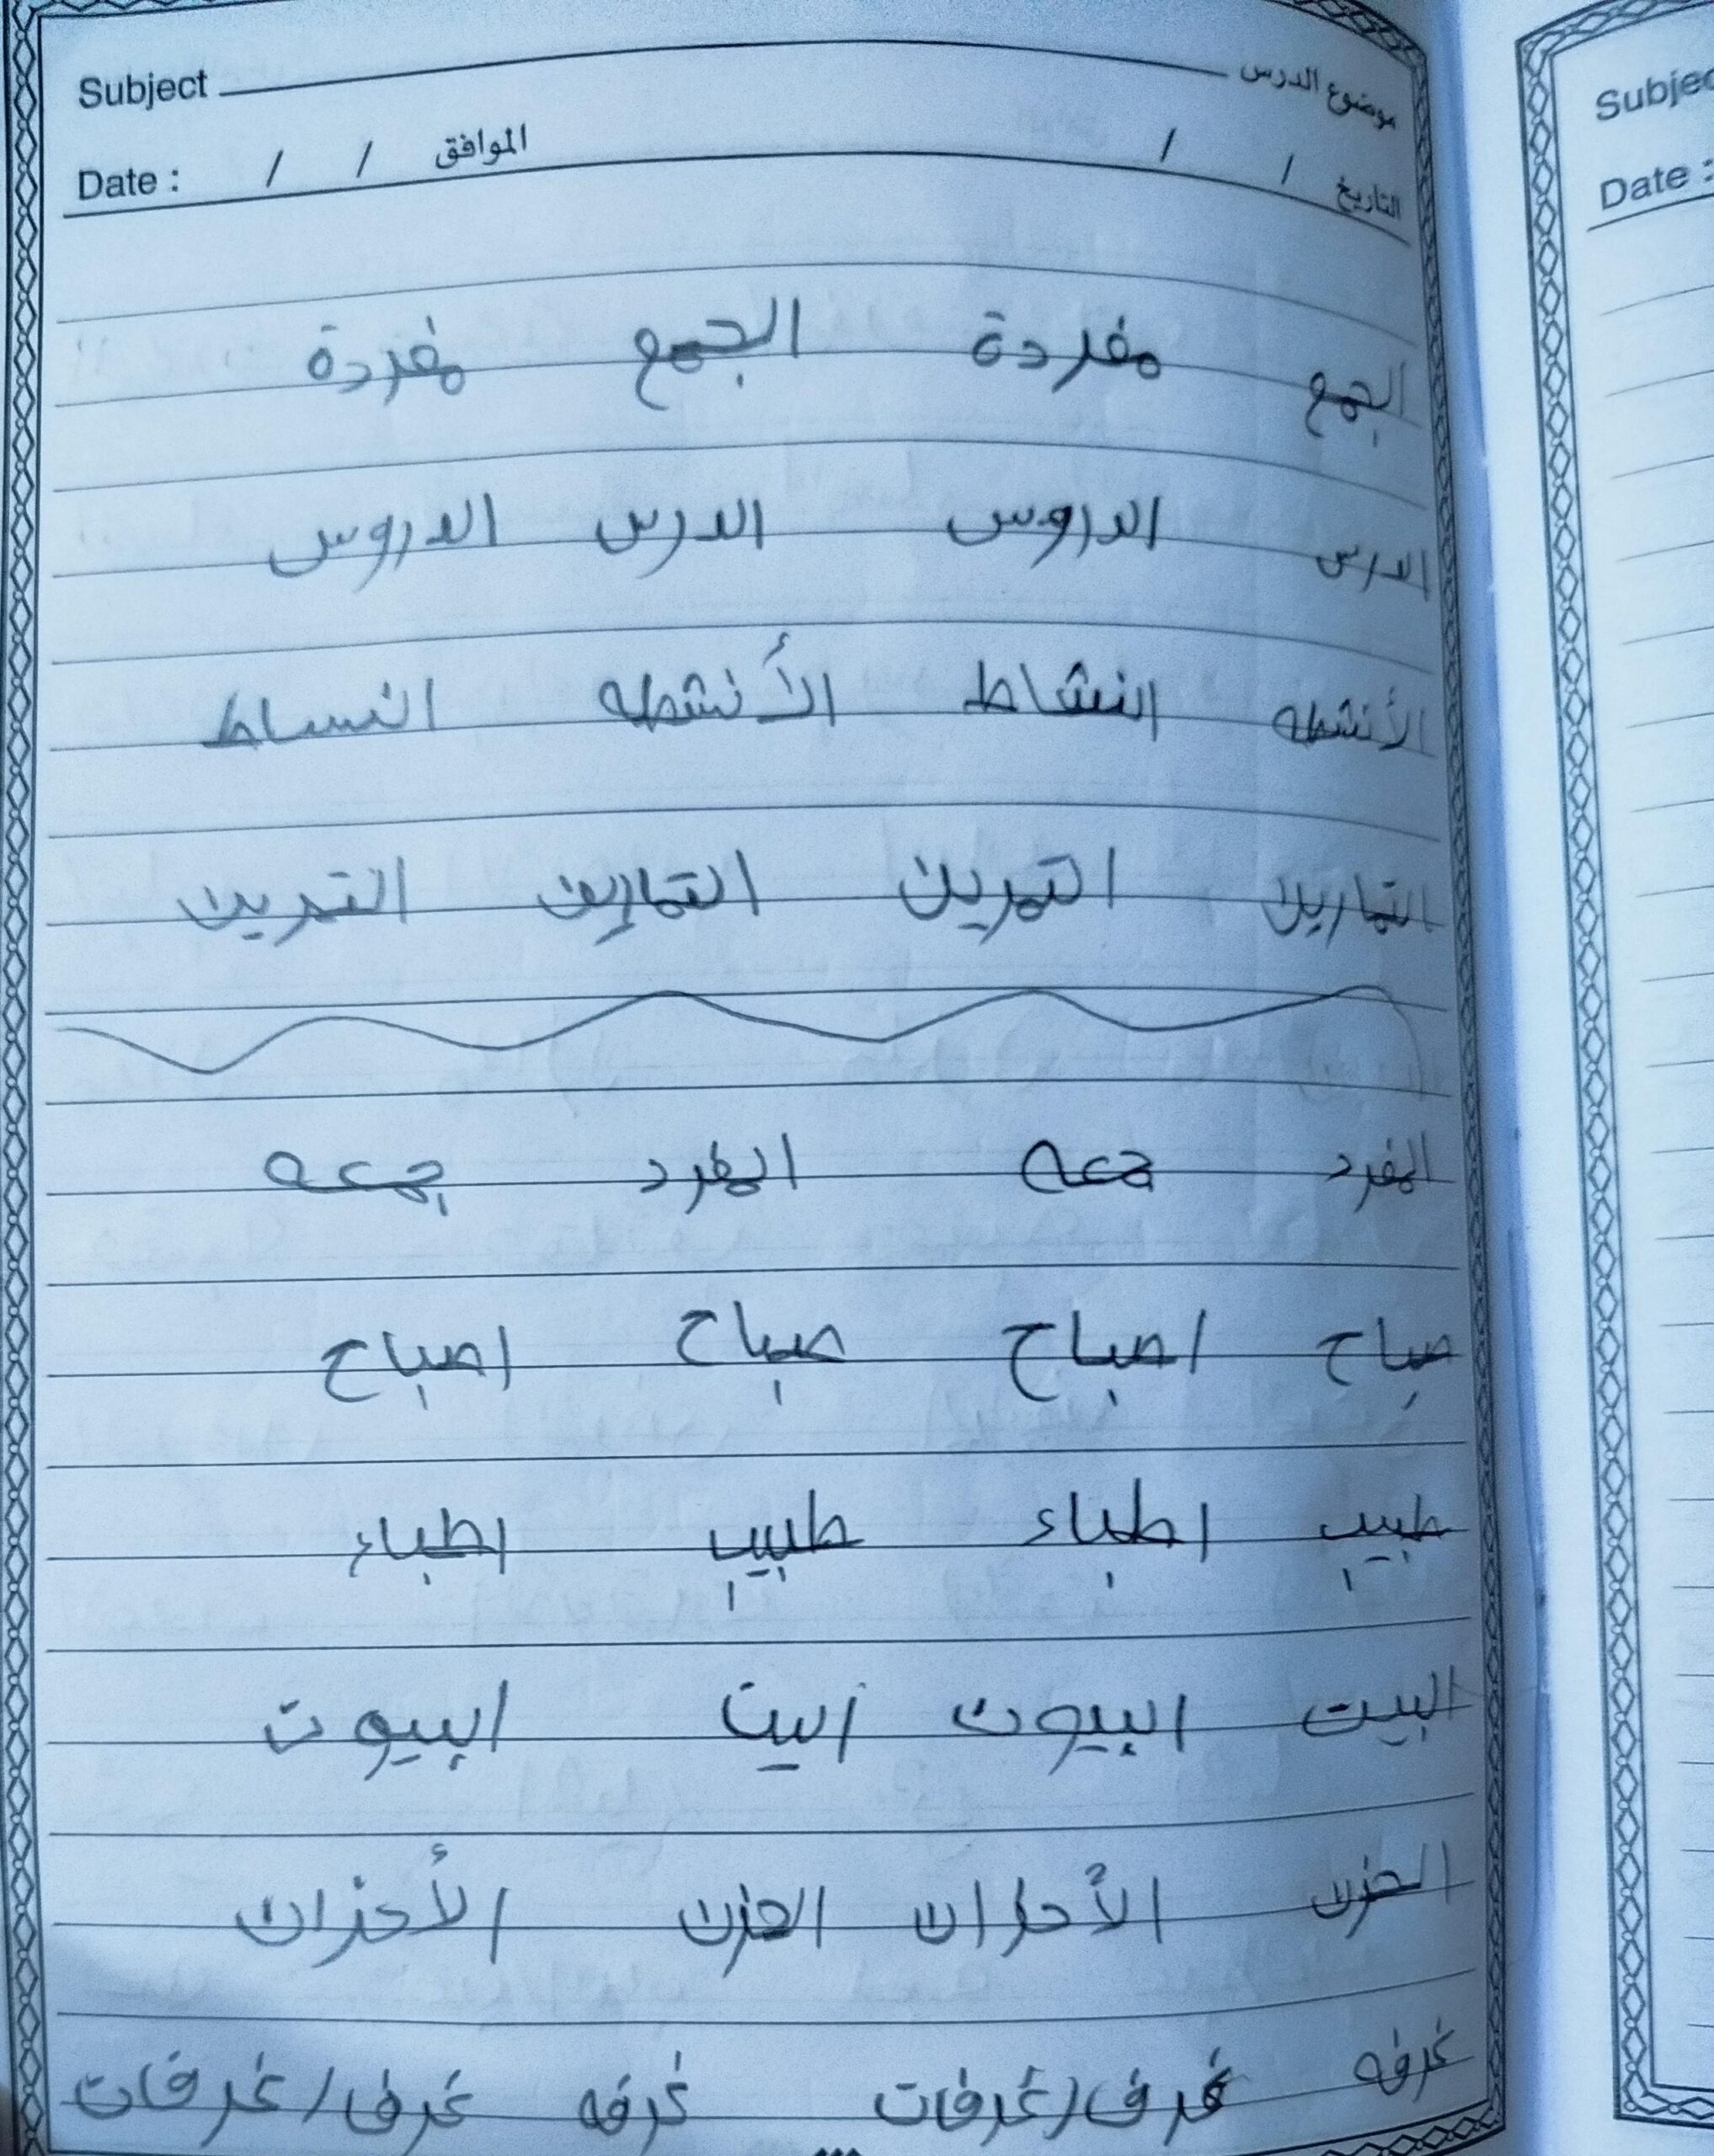 Subject موضوع الدرس
Date : / / الموافق / / التاريخ
الجمع مفردة الجمع مفردة
الدرس الدروس الدرس الدروس
الأنشطه النشاط الأنشطه النساط
التمارين التمرين التمارين التمرين
المفرد جمعه المفرد جمعه
صباح اصباح صباح اصباح
طبيب اطباء طبيب اطباء
البيت البيوت البيت البيوت
الحزن الأحزان الحزن الأحزان
غرفه غرف/غرفات غرفه غرف/غرفات
Subjec
Date :